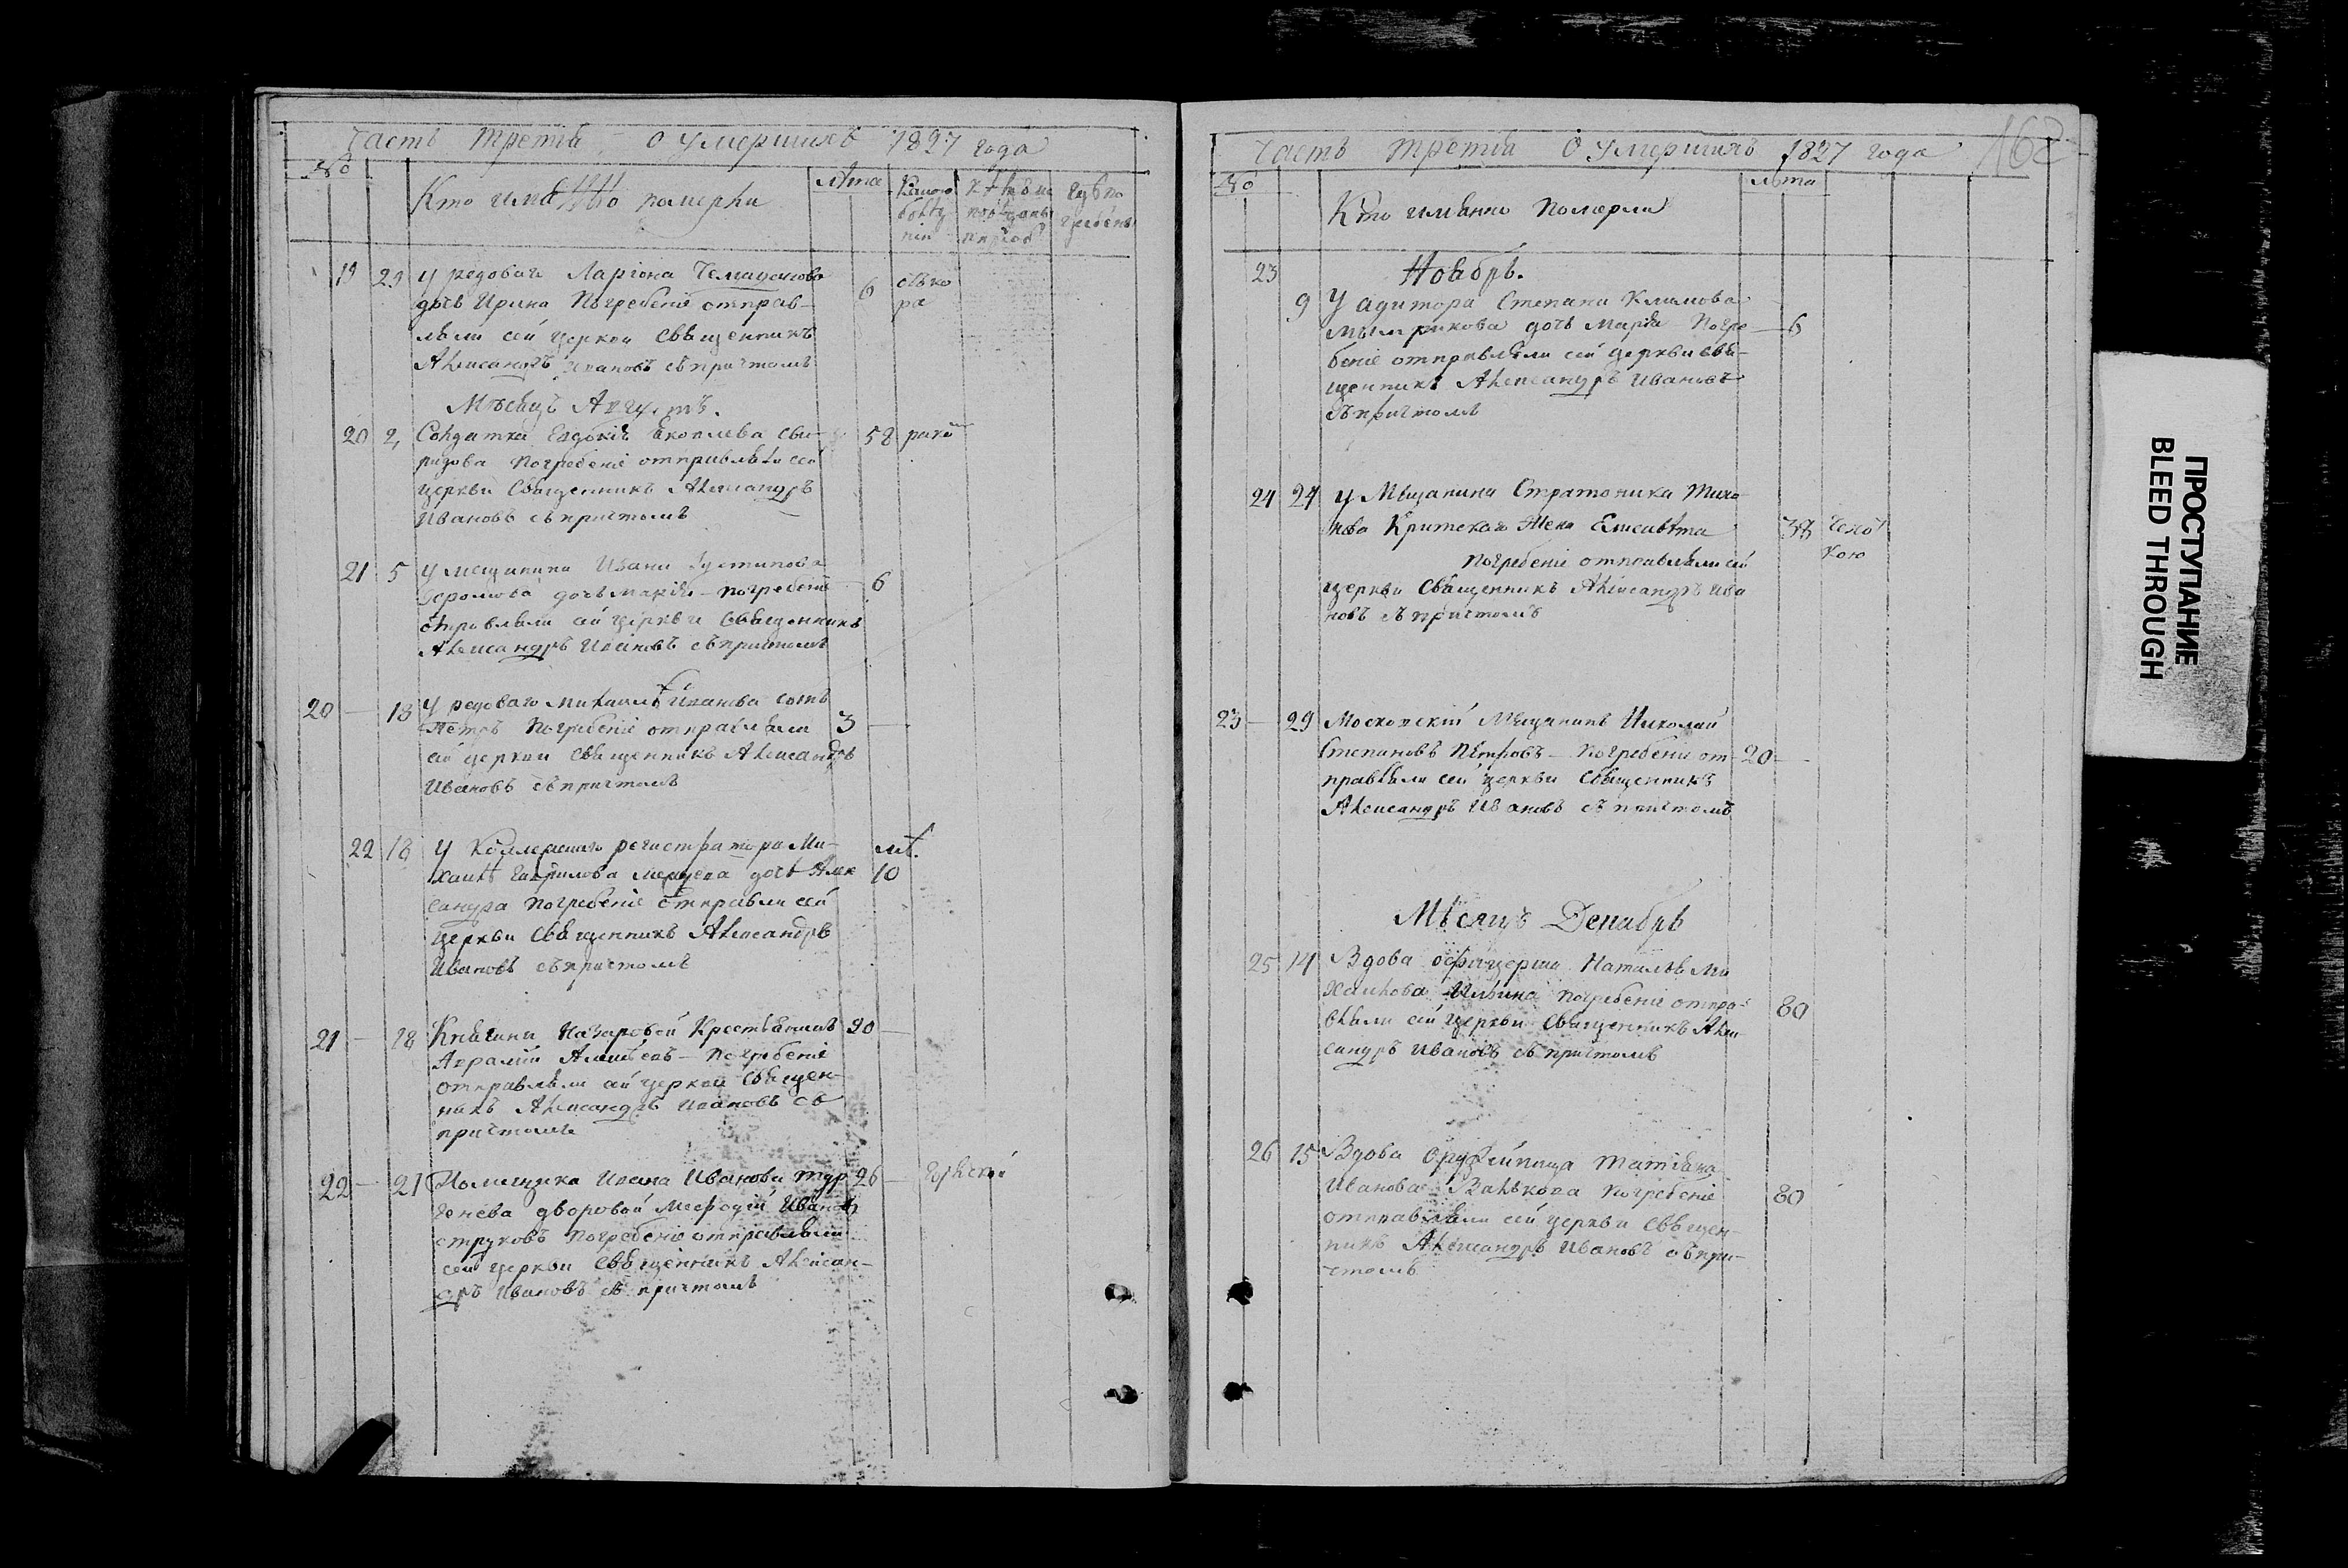 Часть третія о умершихъ 1827 года
№
Кто именно померли
лѣта
Какою
болѣз
ніи
19 23 У редоваго Ларіона
дочь Ирина Погребеніе отправ-
ляли сей церкви Священникъ
Александръ Ивановъ съ причтомъ
6
Мѣсяцъ Августъ.
20 2 Солдатка Евдокія Яковлева Сви-
ридова погребеніе отправляли сей
церкви Священникъ Александръ
Ивановъ съ причтомъ
58
21 5 У мещанина Ивана Устинова
дочь Марія - погребеніе
отправляли сей церкви Священникъ
Александръ Ивановъ съ причтомъ
6
20 — 18 У редоваго Михаила Иванова сынъ
Петръ Погребеніе отправляли
сей церкви Священникъ Александръ
Ивановъ съ причтомъ
3 —
22 18 У Коллежскаго регистратора Ми-
хаила Гаврилова дочь Алек
сандра Погребеніе отправли сей
церкви Священникъ Александръ
Ивановъ съ причтомъ
лѣ.
10
21 — 18 Княгини Назаровой Крестьянинъ
Авраамій Алексѣевъ — Погребеніе
отправляли сей церкви Священ-
никъ Александръ Ивановъ съ
причтомъ
90 —
22 — 21 Помещика Ивана Иванова Тур
генева дворовой Мефодій Ивановъ
Струковъ Погребеніе отправляли
сей церкви Священникъ Алексан-
дръ Ивановъ съ причтомъ
26 —
Часть третія О умершихъ 1827 года
162
№
Кто именно померли
лѣта
23 Ноябрь.
9 У адитора Степана Климова
дочь Марія Погре-
беніе отправляли сей церкви свя-
щенникъ Александръ Ивановъ
съ причтомъ
6
24 24 У Мѣщанина Стратоника Тихо
нова Критскаго Жена Елисавѣта
погребеніе отправляли сей
церкви Священникъ Александръ Ива
новъ съ причтомъ
38 Чехот
кою
23 — 29 Московскій Мѣщанинъ Николай
Степановъ Петровъ — Погребени от-
правляли сей церкви Священникъ
Александръ Ивановъ съ причтомъ
20 —
Мѣсяцъ Декабрь
25 14 Вдова офицерша Наталья Ми
хайлова Ильина погребеніе отпра-
вляли сей церкви Священникъ Алек
сандръ Ивановъ съ причтомъ
80
26 15 Вдова Оружейница Татіяна
Иванова Валькова погребеніе
отправляли сей церкви Священ-
никъ Александръ Ивановъ съ при-
чтомъ
80
ПРОСТУПАНИЕ
BLEED THROUGH